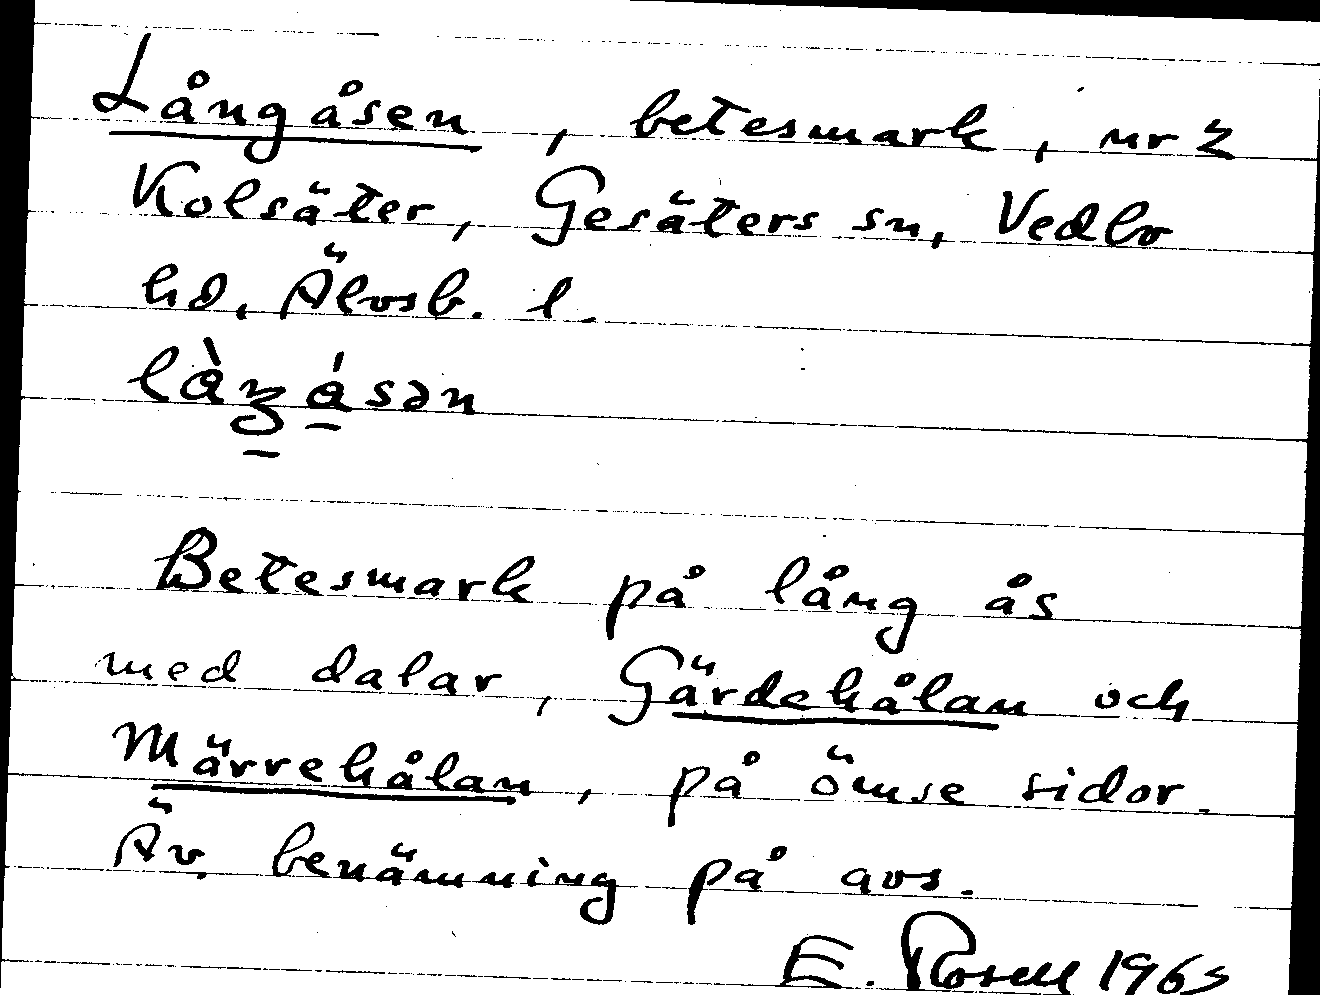 Långåsen, betesmark, nr 2
Kolsäter, Gesäters sn, Vedbo
hd, Älvsb. l.
là̀ŋásən
Betesmark på lång ås
med dalar, Gärdehålan och
Märrehålan, på ömse sidor.
Äv. benämning på avs.
E. Rosell 1965